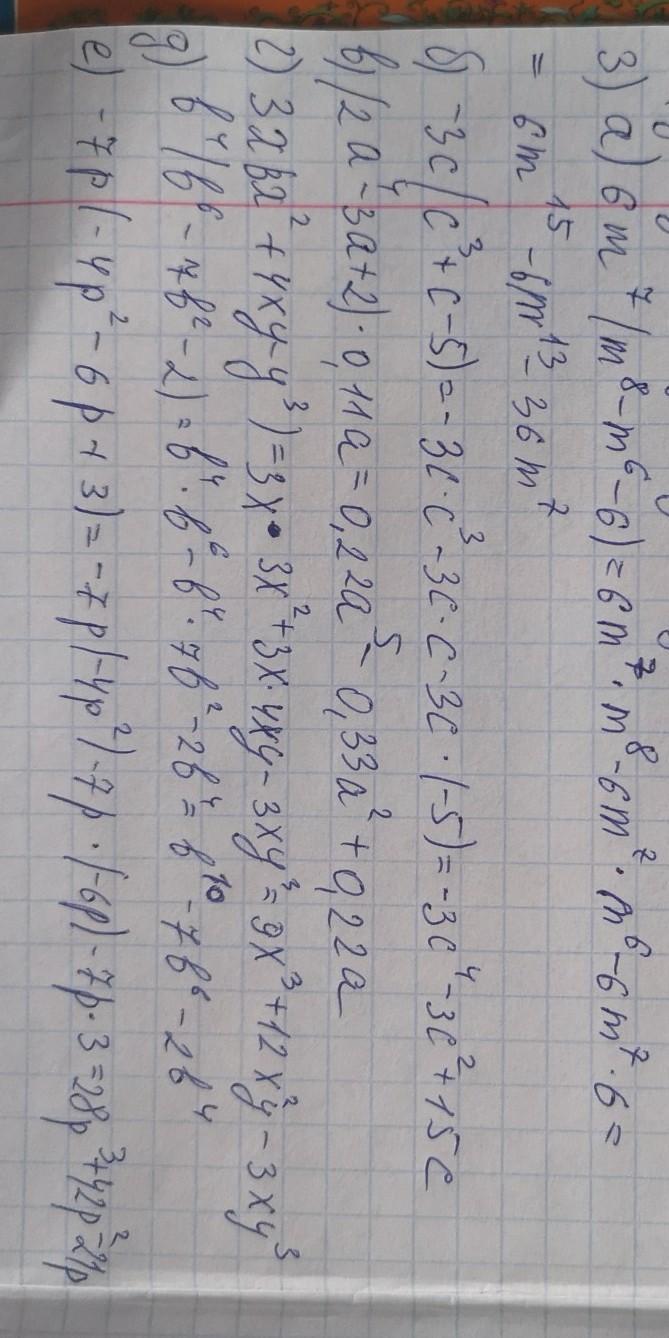 3) а) 6m⁷(m⁸-m⁶-6)=6m⁷·m⁸-6m⁷·m⁶-6m⁷·6=
= 6m¹⁵-6m¹³-36m⁷
б) -3c(c³+c-5)=-3c·c³-3c·c-3c·(-5)=-3c⁴-3c²+15c
в) (2a⁴-3a+2)·0,11a=0,22a⁵-0,33a²+0,22a
г) 3x(3x²+4xy-y³)=3x·3x²+3x·4xy-3xy³=9x³+12x²y-3xy³
д) b⁴(b⁶-7b²-2)=b⁴·b⁶-b⁴·7b²-2b⁴=b¹⁰-7b⁶-2b⁴
е) -7p(-4p²-6p+3)=-7p(-4p²)-7p·(-6p)-7p·3=28p³+42p²-21p